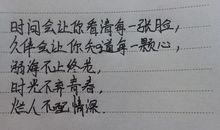 时间会让你看清每一张脸，
久伴会让你知道每一颗心，
沧海不止终老，
时光不弃青春，
烂人不配情深。